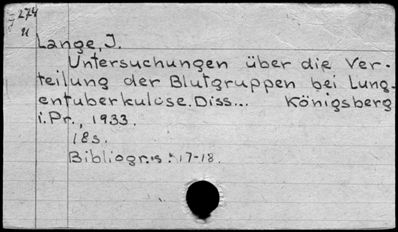 274
u
Lange, J.
Untersuchungen über die Ver-
teilung der Blutgruppen bei Lung-
entuberkulose. Diss... Königsberg
i.Pr., 1933.
18s.
Bibliogr.: s. 17-18.